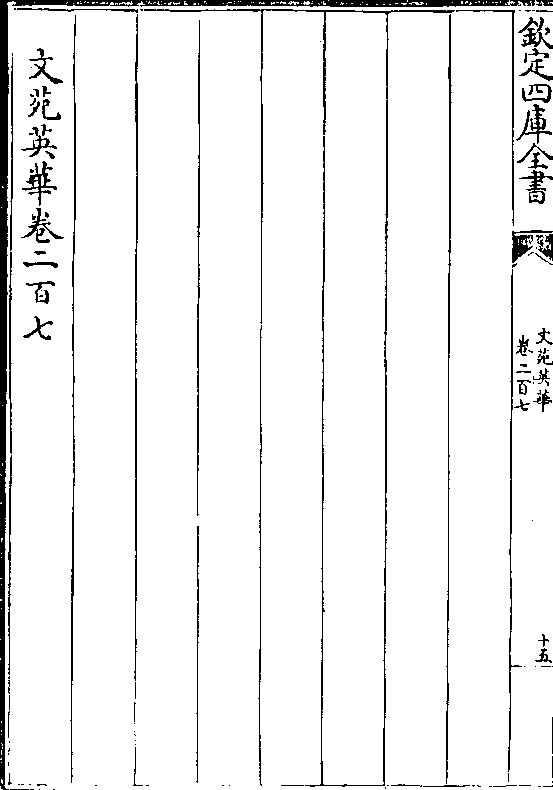 欽定四庫全書
文苑英華
卷二百七
十五
文苑英華卷二百七